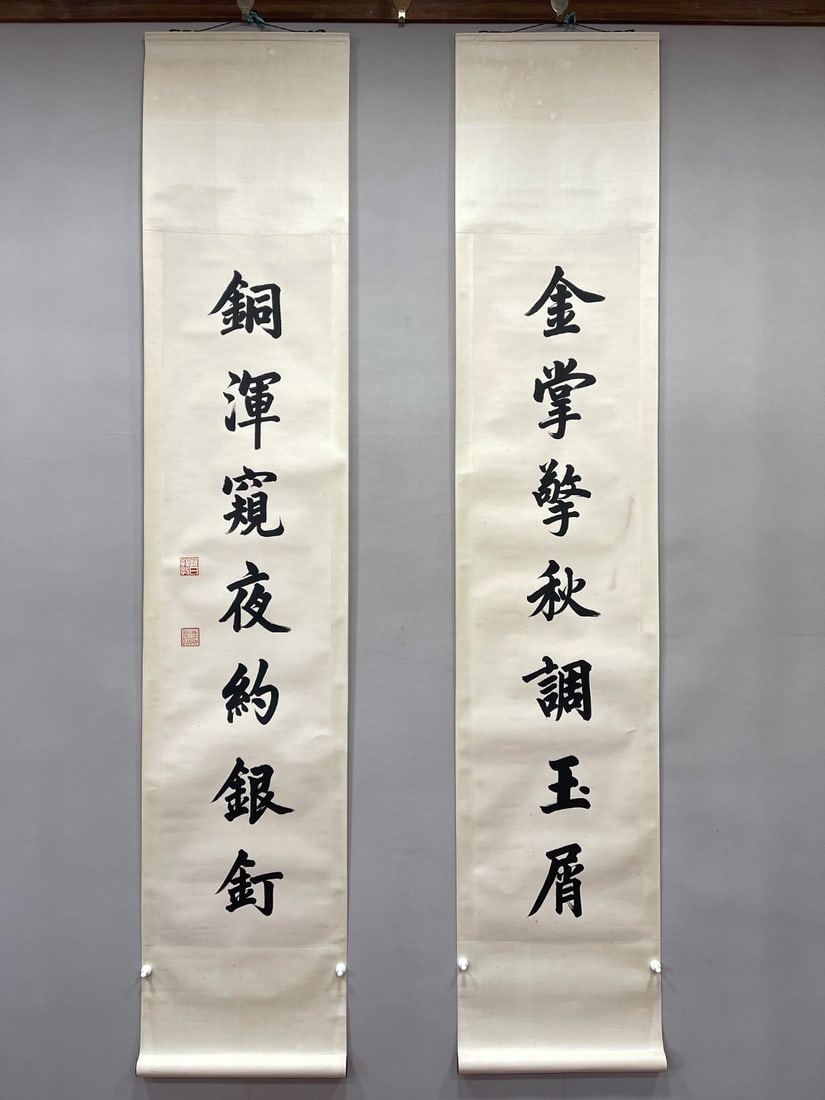 金掌擎秋調玉屑
銅渾窺夜約銀釘